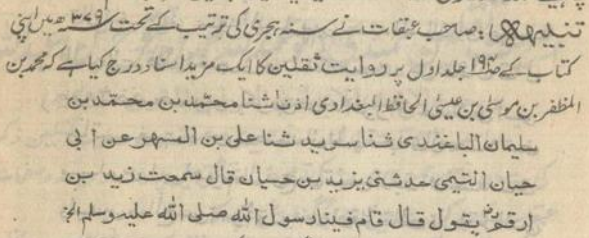 تنبیہہ: صاحب عبقات نے سنہ ہجری کی ترتیب کے تحت ۳۷۹ھ میں اپنی
کتاب کے ص۱۹۴ جلد اول پر روایت ثقلین کا ایک مزید اسناد درج کیا ہے کہ محمد بن
المظفر بن موسیٰ بن عیسیٰ الحافظ البغدادی اذنا ثنا محمّد بن محمّد بن
سلیمان الباغندی ثنا سرید ثنا علی بن المسھر عن ابی
حیان التیمی حدثنی یزید بن حسیان قال سمعت زید بن
ارقم رض یقول قال قام فینا رسول الله صلی الله علیہ وسلم الخ